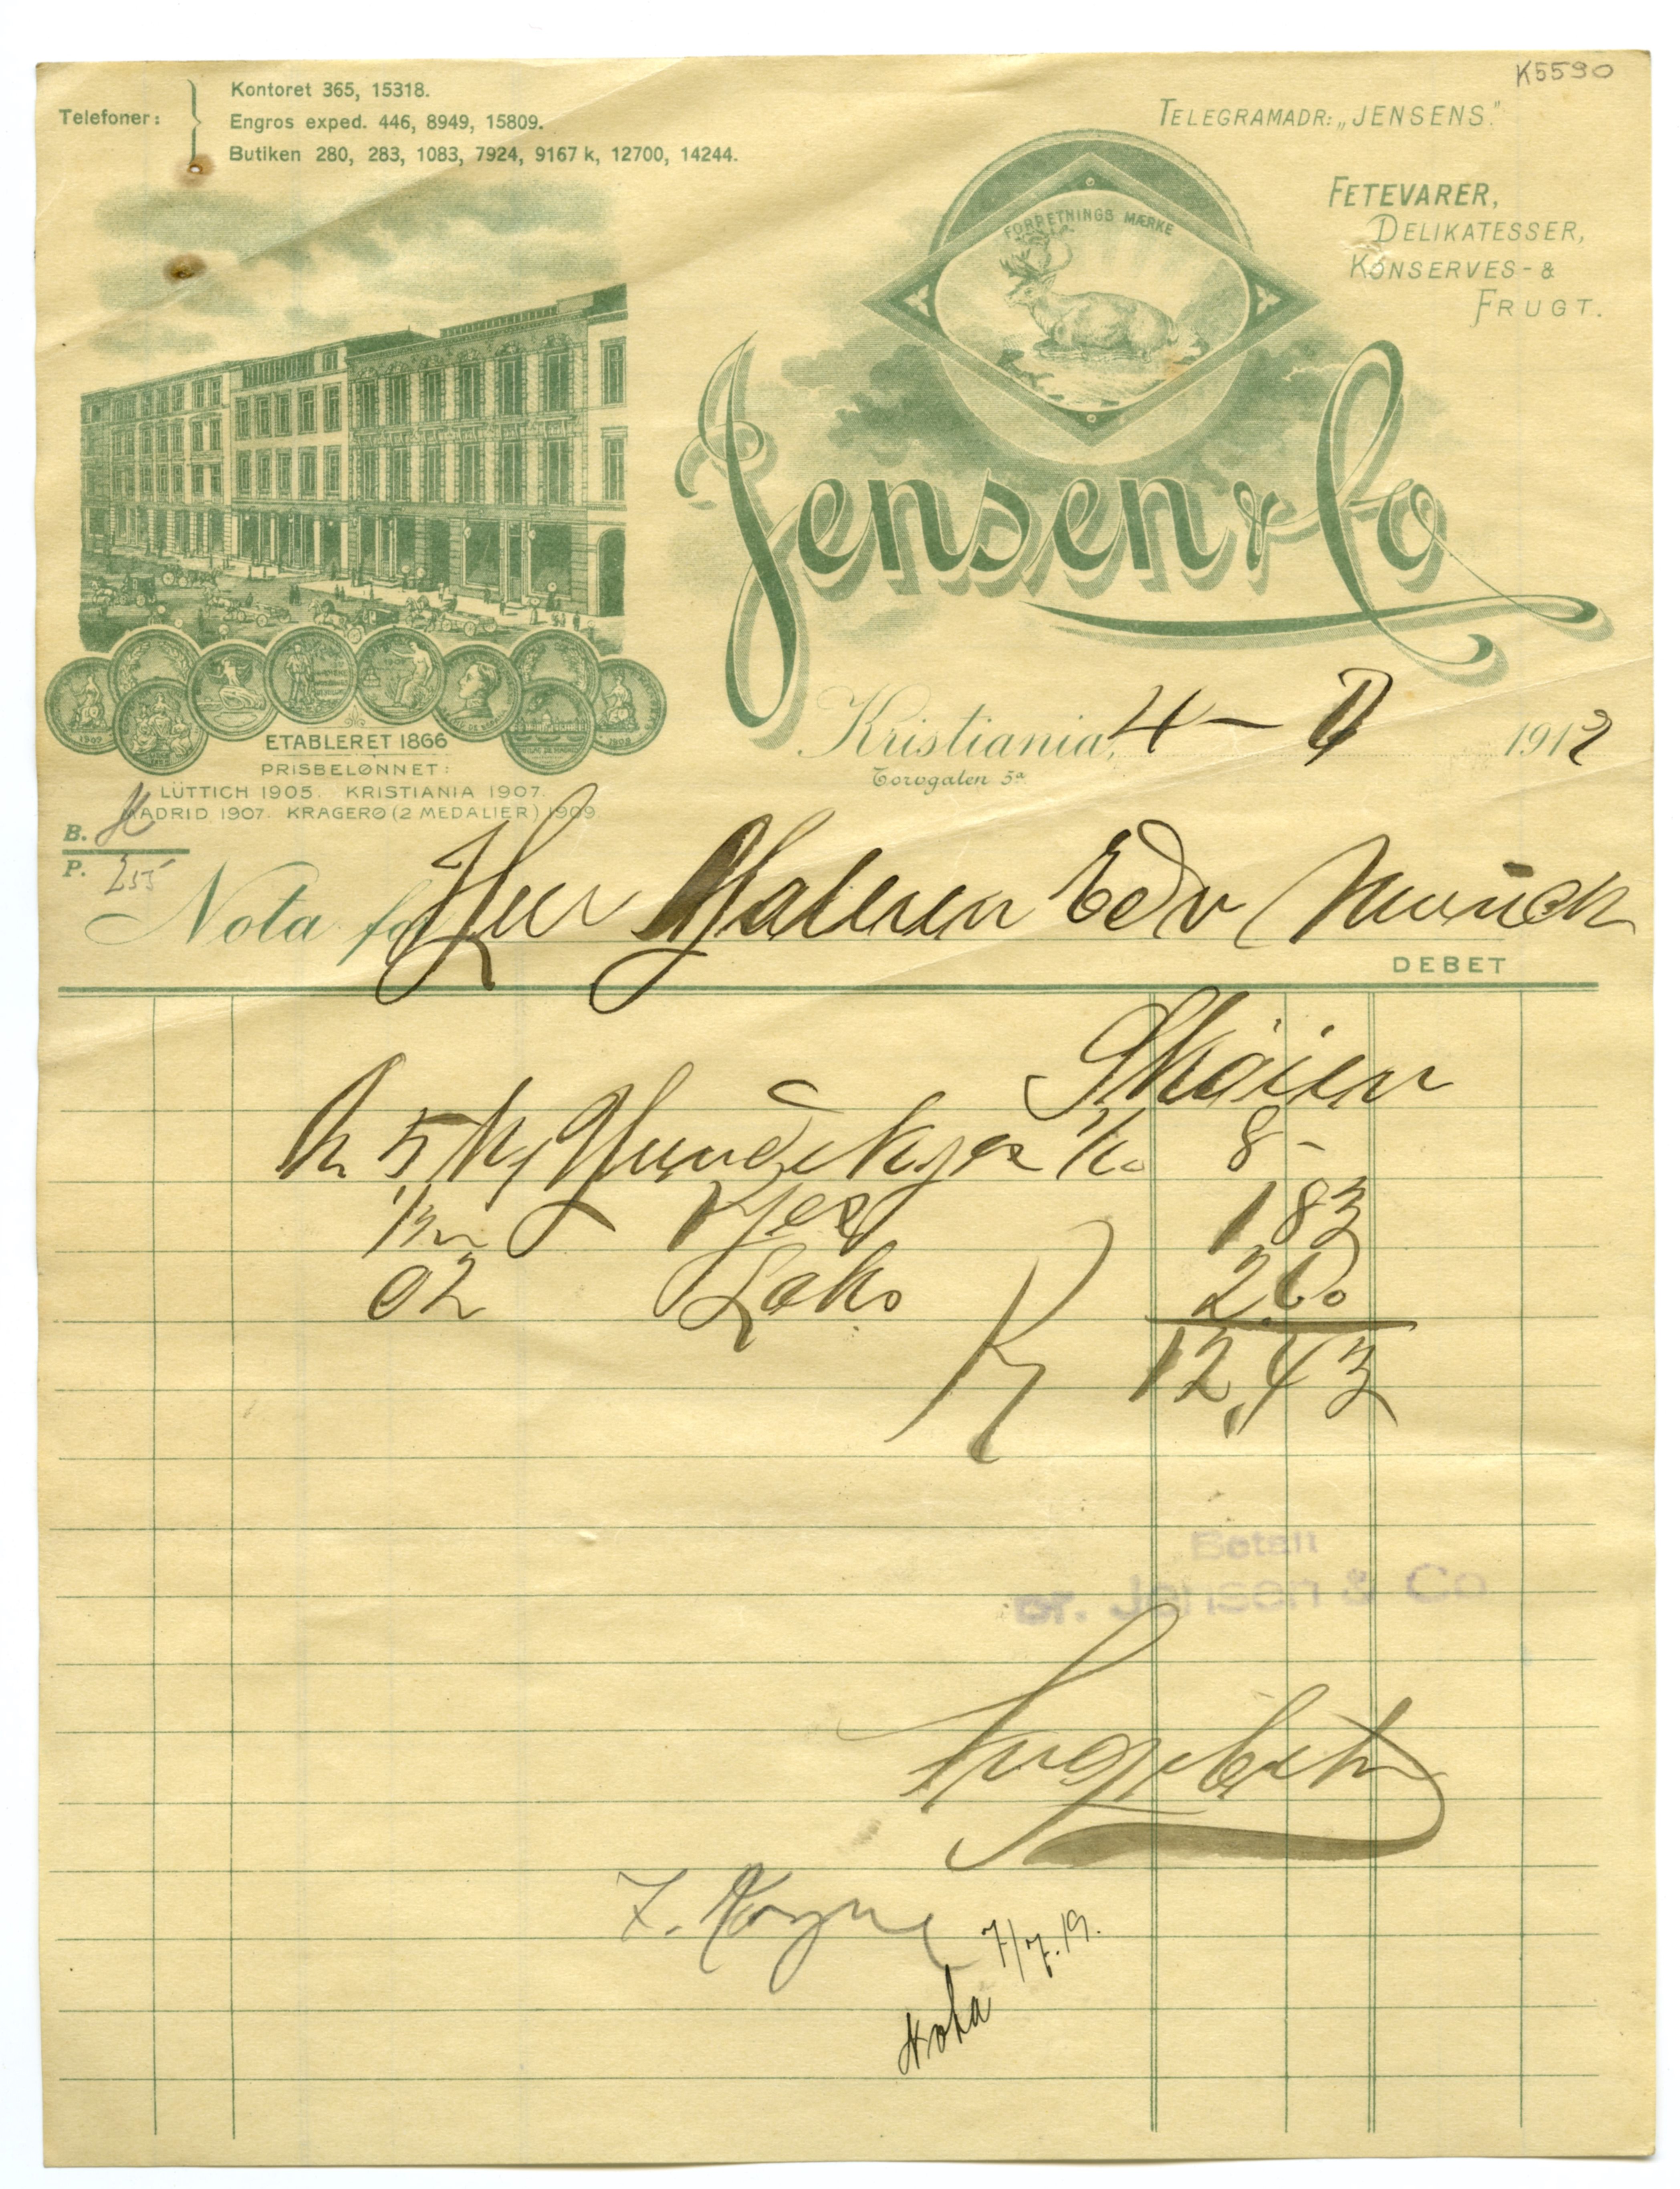 K5590
Telefoner:
Kontoret 365, 15318.
Engros exped. 446, 8949, 15809.
Butiken 280, 283, 1083, 7924, 9167 k, 12700, 14244.
TELEGRAMADR: „JENSENS."
FETEVARER,
DELIKATESSER,
KONSERVES- &
FRUGT.
FORRETNINGS MÆRKE
Jensen & Co
ETABLERET 1866
PRISBELØNNET:
LÜTTICH 1905. KRISTIANIA 1907.
MADRID 1907. KRAGERØ (2 MEDALIER) 1909
Kristiania, 4 – 191
Torvgaten 5a
B.
P. 255
Nota for Herr Maleren Edv Munch
DEBET
Skøien
5 Kg 8-
Kjex 1 83
Laks 2.60
Kr 12,43
Betalt
pr. Jensen & Co
7/7.19.